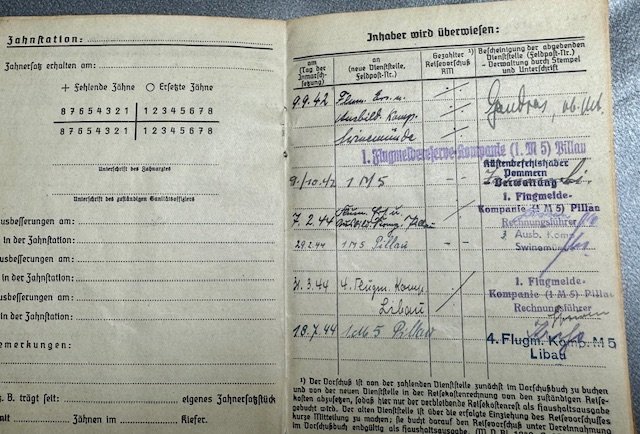 Zahnstation:
Zahnersatz erhalten am:
+ Fehlende Zähne ○ Ersetzte Zähne
8 7 6 5 4 3 2 1 1 2 3 4 5 6 7 8
8 7 6 5 4 3 2 1 1 2 3 4 5 6 7 8
Unterschrift des Zahnarztes
Unterschrift des zuständigen Sanitätsoffiziers
usbesserungen am:
in der Zahnstation:
usbesserungen am:
in der Zahnstation:
usbesserungen am:
in der Zahnstation:
emerkungen:
z. B. trägt seit: eigenes Zahnersatzstück
mit Zähnen im Kiefer.
Inhaber wird überwiesen:
am
(Tag der
Inmarsch-
setzung)
an
(neue Dienststelle,
Feldpost-Nr.)
Gezahlter ¹)
Reisevorschuß
RM
Bescheinigung der abgebenden
Dienststelle (Feldpost-Nr.)
- Verwaltung durch Stempel
und Unterschrift
9.9.42 Flum. Ers. u.
Ausbild. Komp.
Swinemünde
1. Flugmeldereserve-Kompanie (I. M 5) Pillau
Küstenbefehlshaber
Pommern
Verwaltung
1 M/5
7. 2. 44
1. Flugmelde-
Kompanie (I M 5) Pillau
Rechnungsführer
29.2.44 1 M 5 Pillau
3 Ausb. Komp.
Swinemünde
31.3.44 4. Flugm. Komp.
Libau
1. Flugmelde-
Kompanie (I M 5) Pillau
Rechnungsführer
18.7.44 Pillau
4. Flugm. Komp. M 5
Libau
¹) Der Vorschuß ist von der zahlenden Dienststelle zunächst im Vorschußbuch zu buchen
und von der neuen Dienststelle in der Reisekostenrechnung von den zuständigen Reise-
kosten abzusetzen, sodaß hier nur der verbleibende Reisekostenrest als Haushaltsausgabe
gebucht wird. Der alten Dienststelle ist über die erfolgte Einziehung des Reisevorschusses
kurze Mitteilung zu machen; sie bucht darauf den Reisevorschuß unter Vereinnahmung
im Vorschußbuch endgültig als Haushaltsausgabe.